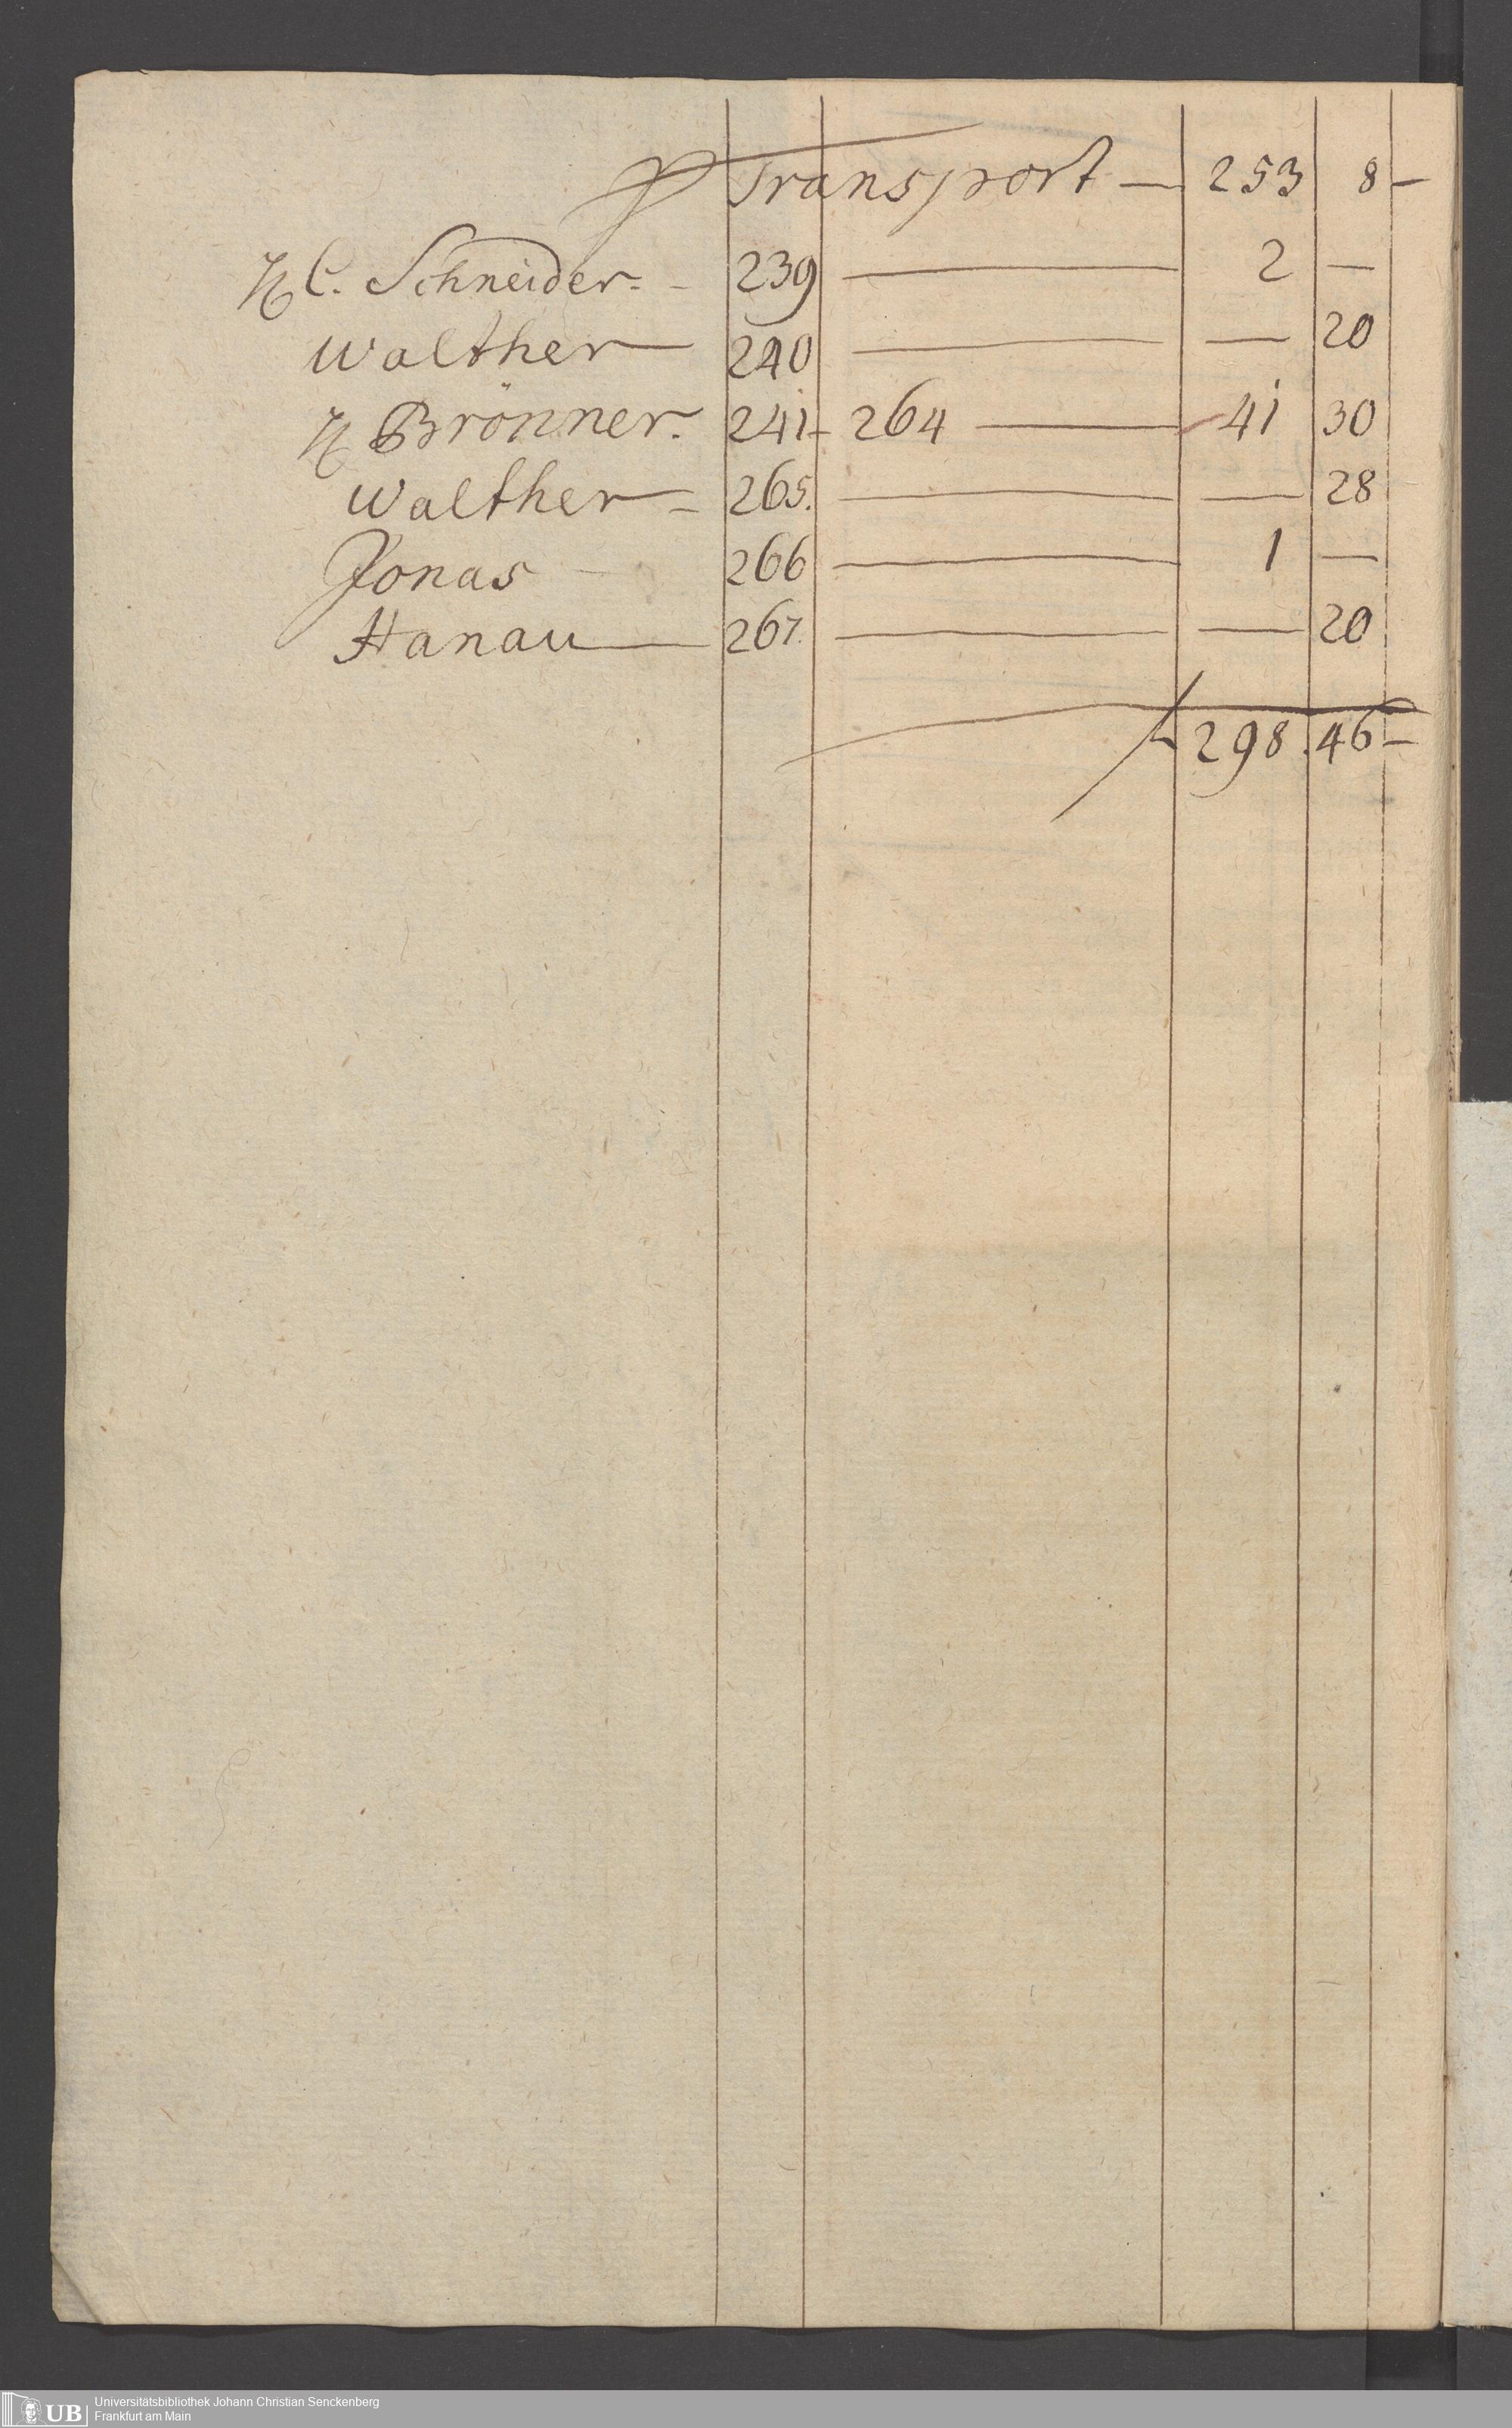 Transport — 253 8 —
H C. Schneider. - 239 — 2 —
Walther — 240 — — 20
H Brönner. 241 - 264 — 41 30
Walther - 265. — — 28
Jonas - 266 — 1 —
Hanau — 267. — — 20
298. 46 —
UB
Universitätsbibliothek Johann Christian Senckenberg
Frankfurt am Main